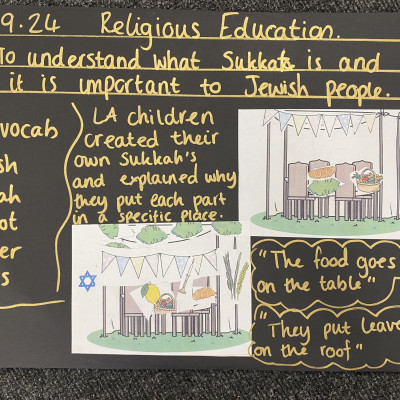 9.24 Religious Education.
To understand what Sukkot is and
it is important to Jewish people.
vocab
LA children
created their
own Sukkah's
and explained why
they put each part
in a specific place.
"The food goes
on the table"
"They put leave
on the roof"